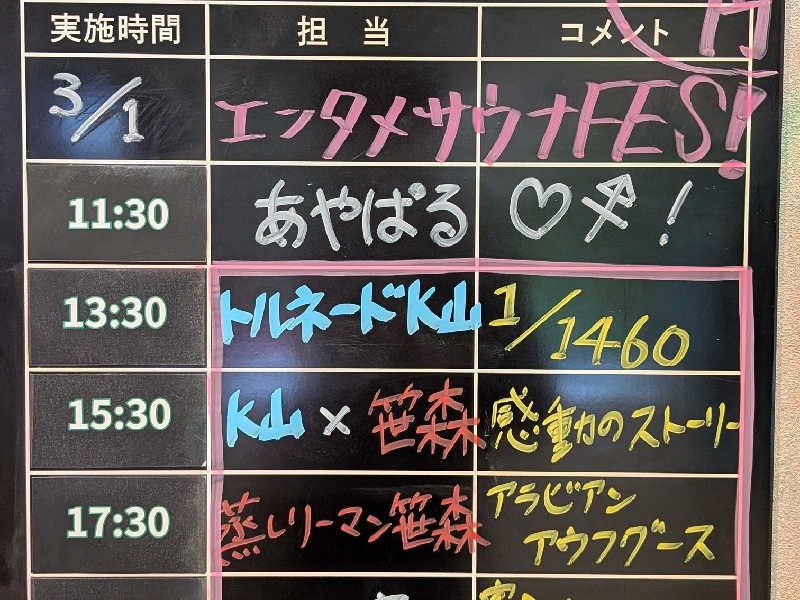 実施時間 担当 コメント
3/1 エンタメサウナFES!
11:30 あやぱる ♡〆!
13:30 トルネードK山 1/1460
15:30 K山×笹森 感動のストーリー
17:30 蒸しリーマン笹森 アラビアン
アウフグース